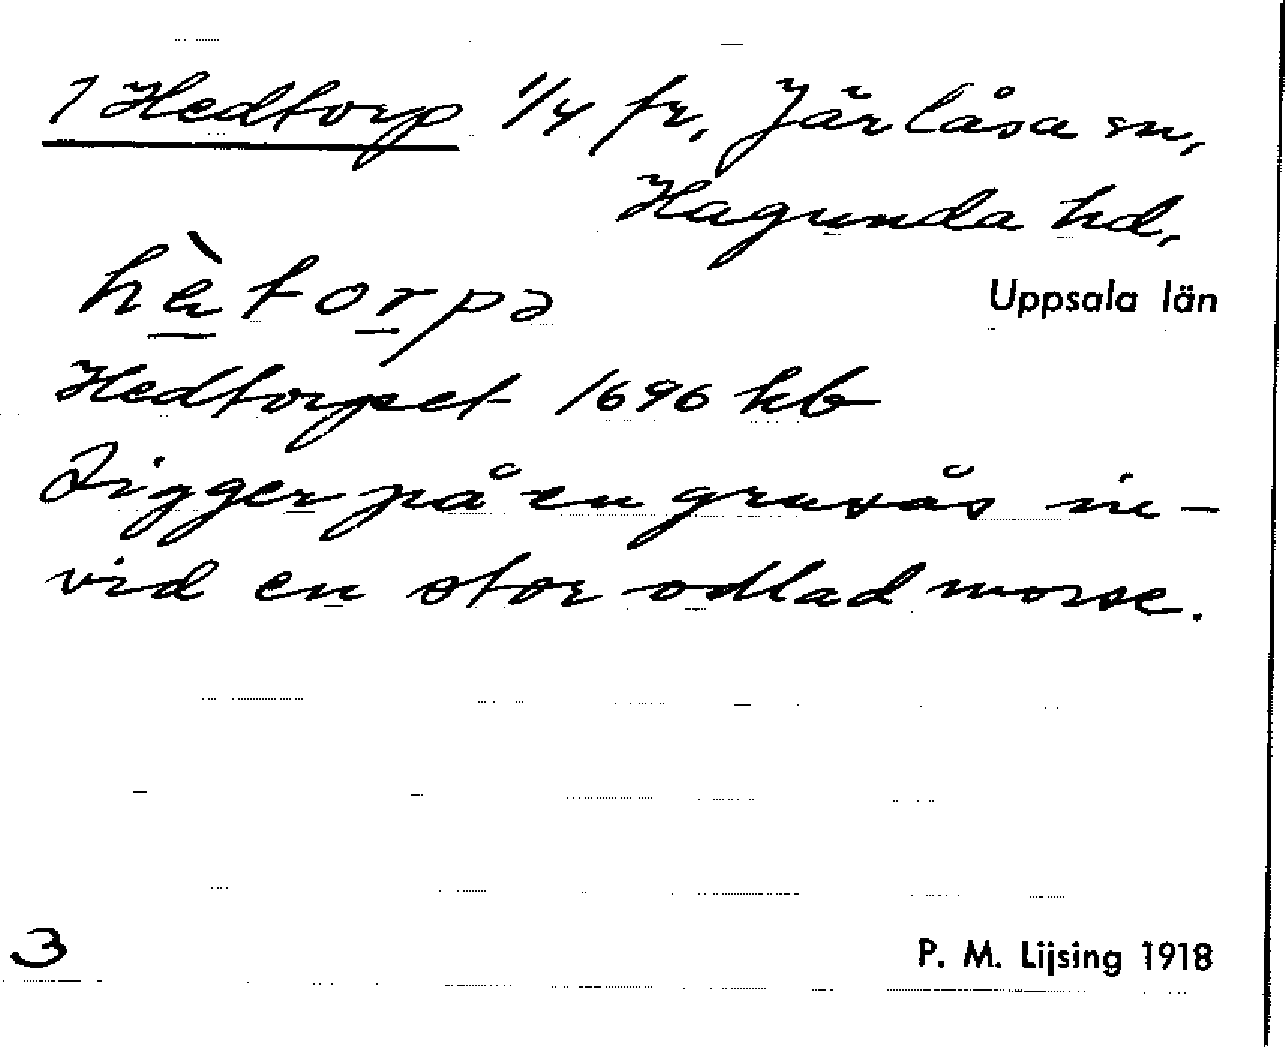 1 Hedtorp 1/4 fr, Järlåsa sn,
Hagunda hd,
hè̱to̱rpə
Uppsala län
Hedtorpet 1696 kb
Ligger på en grusås in-
vid en stor odlad mosse.
3
P. M. Lijsing 1918